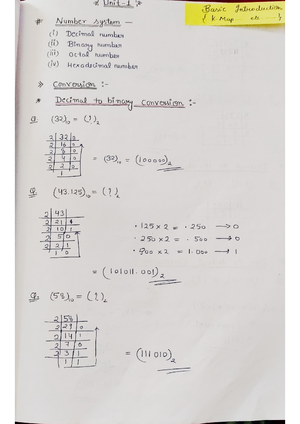 Unit-1
Basic Introduction
{ K-Map etc }
# Number system –
(i) Decimal number
(ii) Binary number
(iii) Octal number
(iv) Hexadecimal number
⇒ Conversion :-
* Decimal to binary conversion :-
Q. (32)₁₀ = (?)₂
2 | 32 | 0
2 | 16 | 0
2 | 8 | 0
2 | 4 | 0
2 | 2 | 0
1
= (32)₁₀ = (100000)₂
Q. (43.125)₁₀ = (?)₂
2 | 43
2 | 21 | 1
2 | 10 | 1
2 | 5 | 0
2 | 2 | 1
1 0
.125 × 2 = .250 → 0
.250 × 2 = .500 → 0
.500 × 2 = 1.000 → 1
= (101011.001)₂
Q. (58)₁₀ = (?)₂
2 | 58
2 | 29 | 0
2 | 14 | 1
2 | 7 | 0
2 | 3 | 1
1 1
= (111010)₂